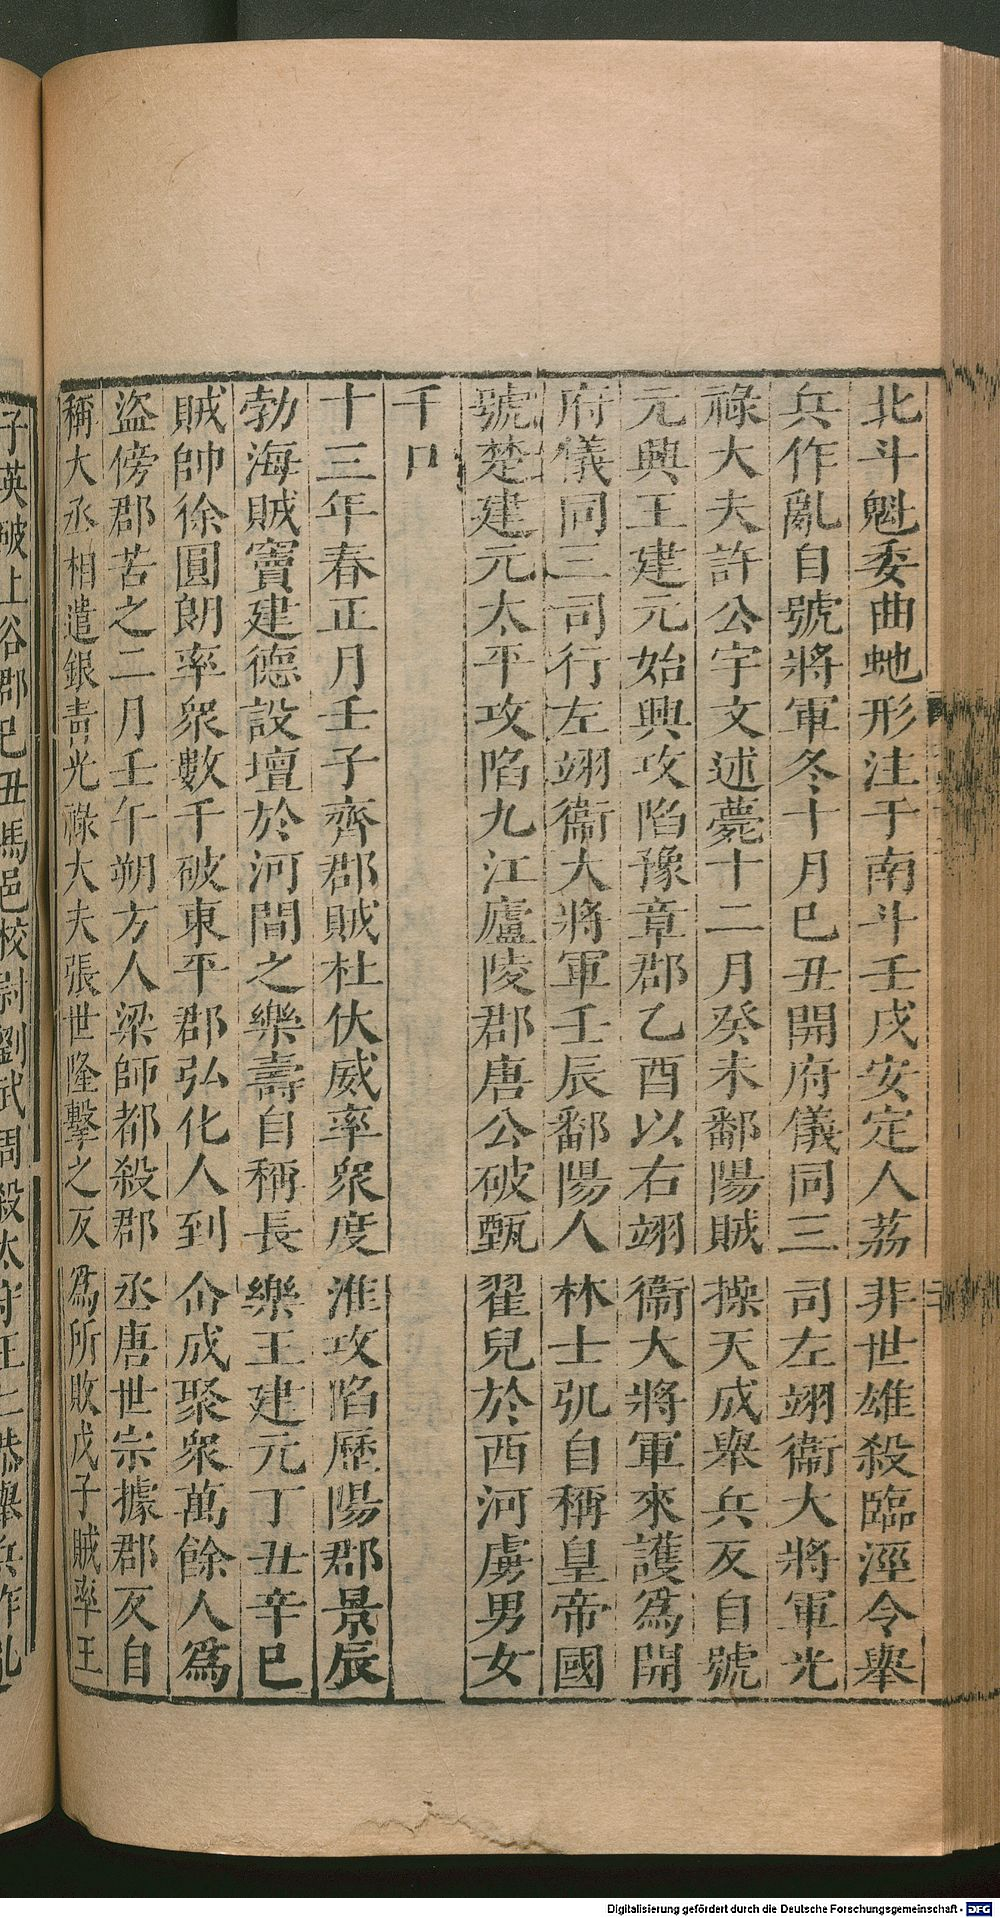 北斗魁委曲虵形注于南斗壬戌安定人荔非世雄殺臨涇令舉
兵作亂自號將軍冬十月巳丑開府儀同三司左翊衞大將軍光
祿大夫許公宇文述薨十二月癸未鄱陽賊操天成舉兵反自號
元興王建元始興攻陷豫章郡乙酉以右翊衞大將軍來護爲開
府儀同三司行左翊衞大將軍壬辰鄱陽人林士弘自稱皇帝國
號楚建元太平攻陷九江廬陵郡唐公破甄翟兒於西河虜男女
千口
十三年春正月壬子齊郡賊杜伏威率衆度淮攻陷歷陽郡景辰
勃海賊竇建德設壇於河間之樂壽自稱長樂王建元丁丑辛巳
賊帥徐圓朗率衆數千破東平郡弘化人到仚成聚衆萬餘人爲
盜傍郡苦之二月壬午朔方人梁師都殺郡丞唐世宗據郡反自
稱大丞相遣銀青光祿大夫張世隆擊之反爲所敗戊子賊率王
子英破上谷郡巳丑馬邑校尉劉武周殺太守王仁恭舉兵作亂
Digitalisierung gefördert durch die Deutsche Forschungsgemeinschaft - DFG